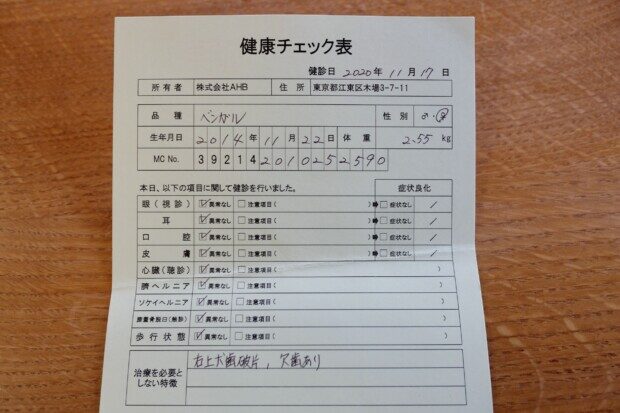 健康チェック表
健診日 2020年 11月 17日
所有者 株式会社AHB 住所 東京都江東区木場3-7-11
品種 ベンガル 性別 ♂・♀
生年月日 2014年 11月 22日 体重 2.55 kg
MC No. 392142010252590
本日、以下の項目に関して健診を行いました。 症状良化
眼(視診) ☑異常なし □注意項目( )➡□症状なし /
耳 ☑異常なし □注意項目( )➡□症状なし /
口腔 ☑異常なし □注意項目( )➡□症状なし /
皮膚 ☑異常なし □注意項目( )➡□症状なし /
心臓(聴診) ☑異常なし □注意項目( )
臍ヘルニア ☑異常なし □注意項目( )
ソケイヘルニア ☑異常なし □注意項目( )
膝蓋骨脱臼(触診) ☑異常なし □注意項目( )
歩行状態 ☑異常なし □注意項目( )
治療を必要と
しない特徴
右上犬歯破片, 欠歯あり